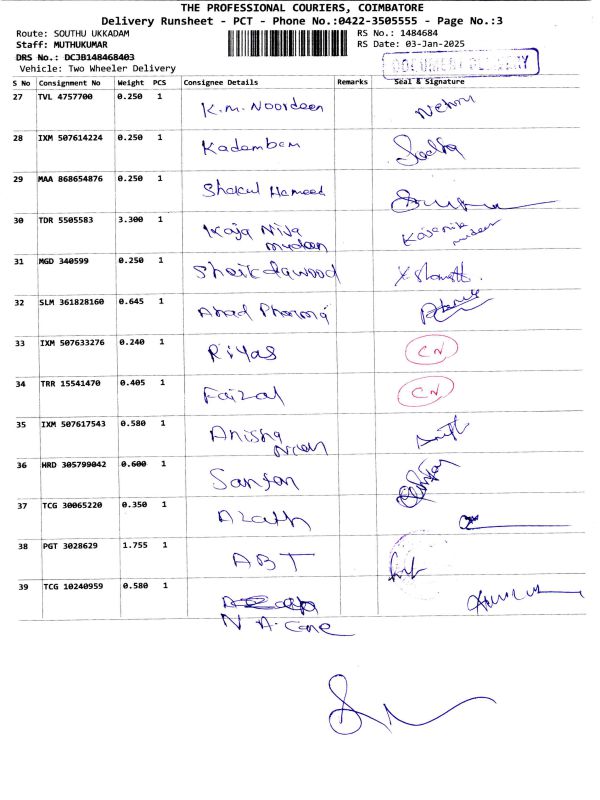 THE PROFESSIONAL COURIERS, COIMBATORE
Delivery Runsheet - PCT - Phone No.:0422-3505555 - Page No.:3
Route: SOUTHU UKKADAM RS No.: 1484684
Staff: MUTHUKUMAR RS Date: 03-Jan-2025
DRS No.: DCJB148468403
DOCUMENT DELIVERY
Vehicle: Two Wheeler Delivery
S No Consignment No Weight PCS Consignee Details Remarks Seal & Signature
27 TVL 4757700 0.250 1 K.M. Noordeen
28 IXM 507614224 0.250 1 Kadamban
29 MAA 868654876 0.250 1 Shakul Hameed
30 TDR 5505583 3.300 1 Kaja Nija
mudeen
31 MGD 340599 0.250 1 Sheik dawood
32 SLM 361828160 0.645 1 Ahad Pharma
33 IXM 507633276 0.240 1 Riyas CN
34 TRR 15541470 0.405 1 Faizal CN
35 IXM 507617543 0.580 1 Anisha
36 HRD 305799042 0.600 1
37 TCG 30065220 0.350 1 Azath
38 PGT 3028629 1.755 1 ABT
39 TCG 10240959 0.580 1
N A. Care